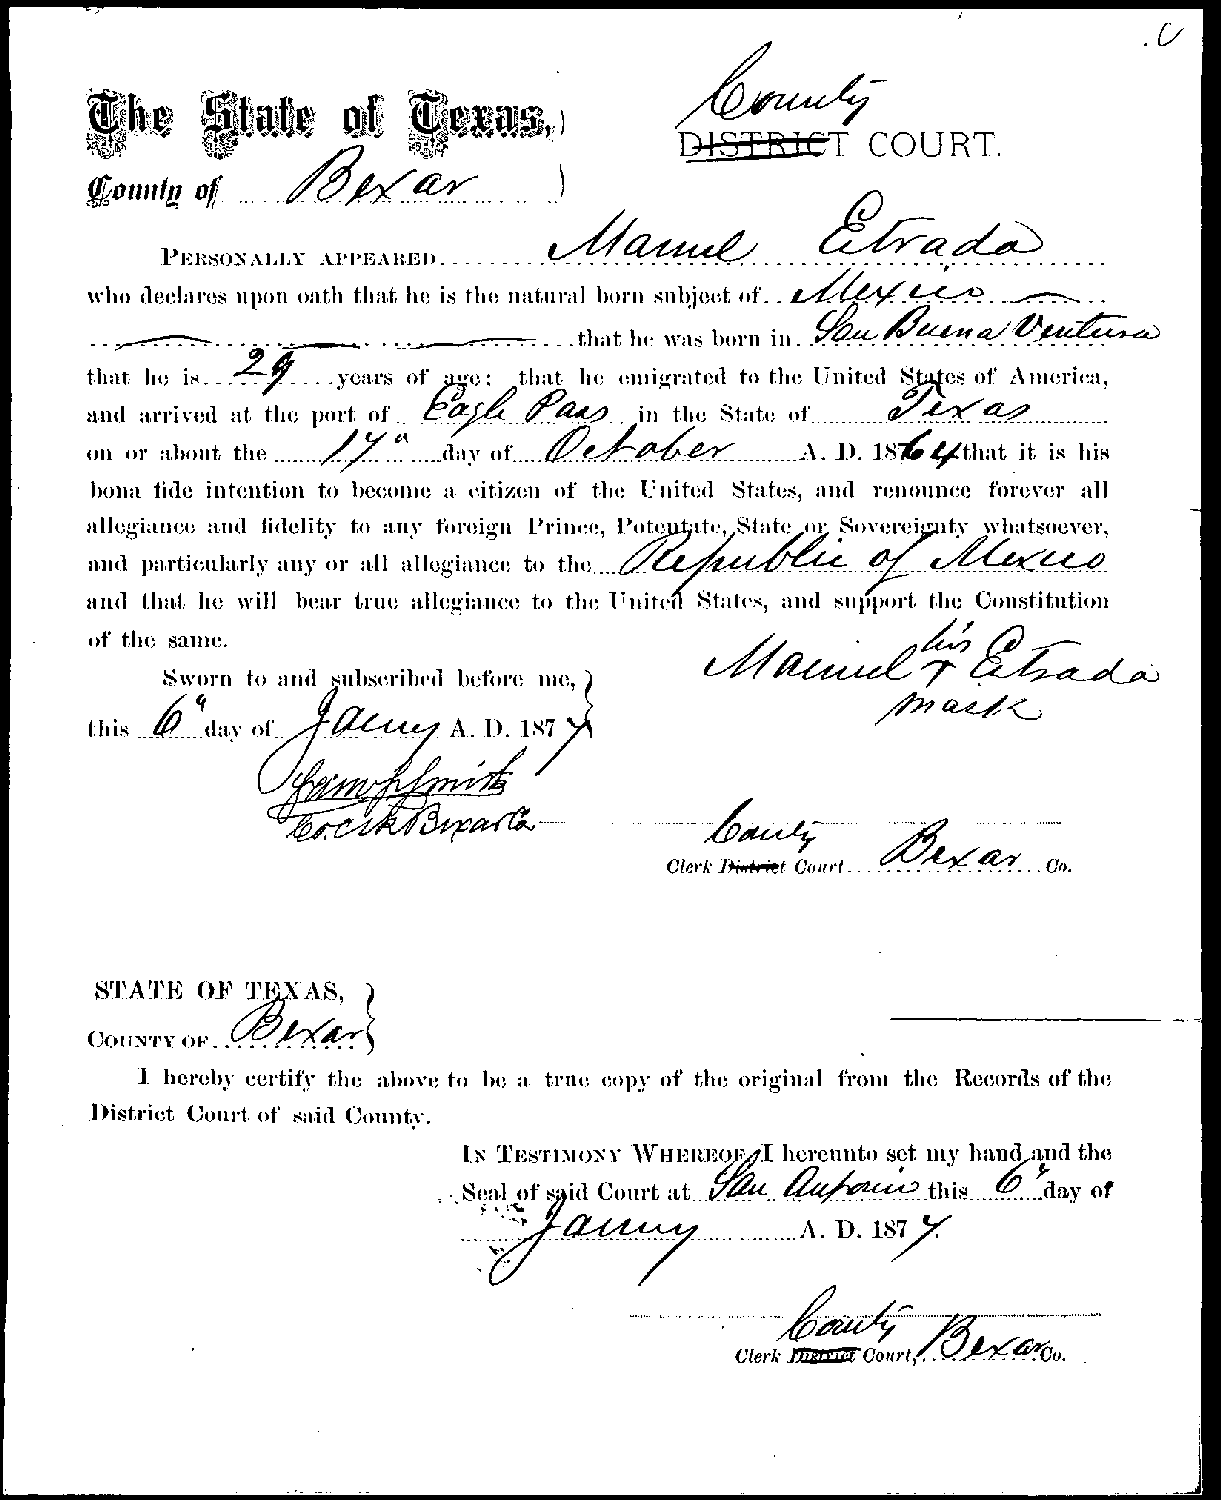 County
The State of Texas,
DISTRICT COURT.
County of Bexar
PERSONALLY APPEARED Manuel Estrada
who declares upon oath that he is the natural born subject of Mexico
that he was born in San Buena Ventura
that he is 29 years of age; that he emigrated to the United States of America,
and arrived at the port of Eagle Pass in the State of Texas
on or about the 17" day of October A. D. 1864 that it is his
bona fide intention to become a citizen of the United States, and renounce forever all
allegiance and fidelity to any foreign Prince, Potentate, State or Sovereignty whatsoever,
and particularly any or all allegiance to the Republic of Mexico
and that he will bear true allegiance to the United States, and support the Constitution
of the same.
his
Manuel x Estrada
mark
Sworn to and subscribed before me,
this 6" day of Jany A. D. 1877
Smith
Co. Clk Bexar Co
County
Clerk District Court Bexar Co.
STATE OF TEXAS,
COUNTY OF Bexar
I hereby certify the above to be a true copy of the original from the Records of the
District Court of said County.
IN TESTIMONY WHEREOF, I hereunto set my hand and the
Seal of said Court at San Antonio this 6" day of
Jany A. D. 1877.
County
Clerk District Court, Bexar Co.